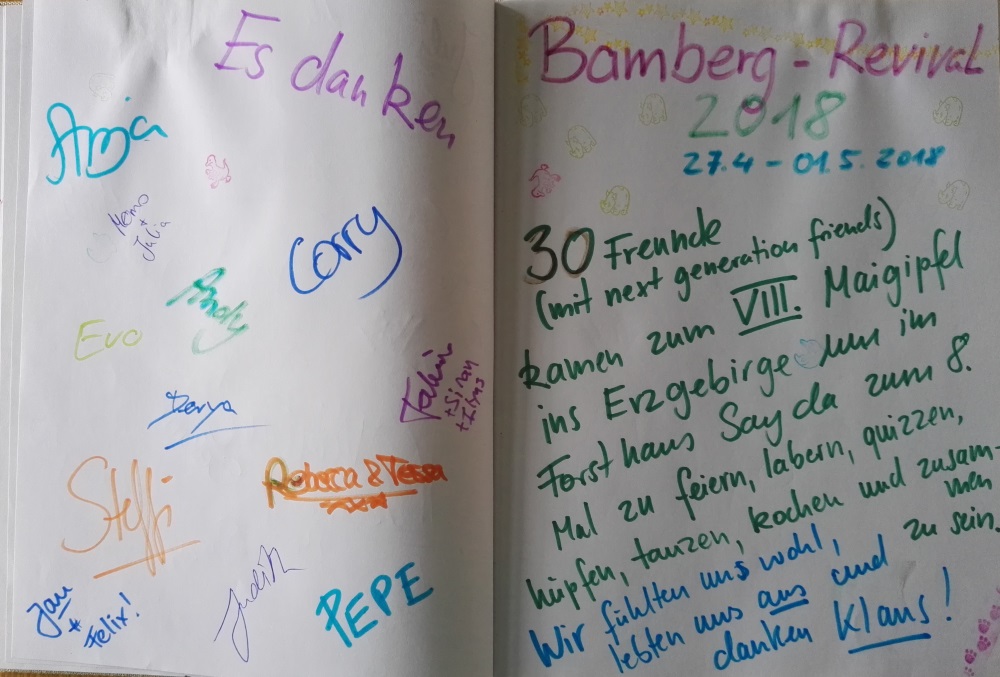 Es danken
Anja
Memo
+
Julia
Corry
Andy
Evo
Tahin
+ Sinan
+ Ilyas
Derya
Steffi
Rebecca & Tessa
Judith
Jan
+ Felix!
PEPE
Bamberg - Revival
2018
27.4 - 01.5.2018
30 Freunde
(mit next generation friends)
kamen zum VIII. Maigipfel
ins Erzgebirge um im
Forsthaus Sayda zum 8.
Mal zu feiern, labern, quizzen,
hüpfen, tanzen, kochen und zusam-
men
zu sein.
Wir fühlten uns wohl,
lebten uns aus und
danken Klaus!